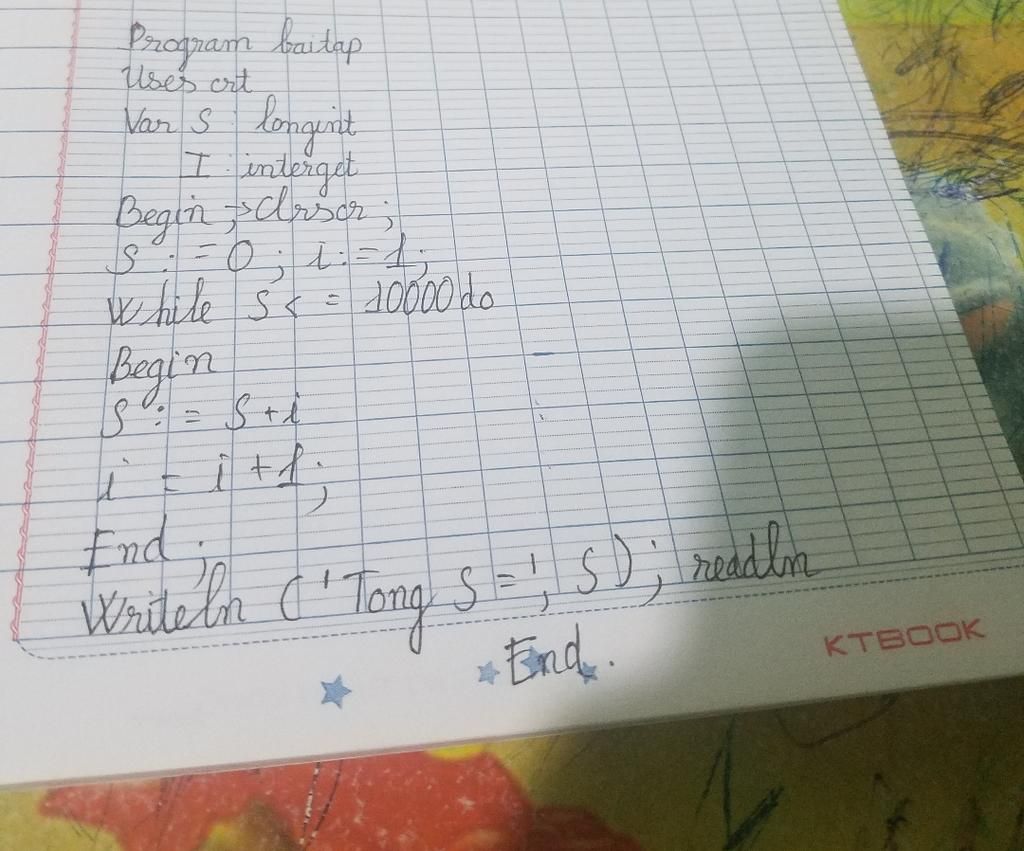 Program baitap
Uses crt
Var S : longint
I : interget
Begin ; → Clrscr ;
S : = 0 ; i : = 1 ;
While S < = 10000 do
Begin
S : = S + i
i = i + 1 ;
End ;
Writeln ( ' Tong S = ' , S ) ; readln
End .
KTBOOK